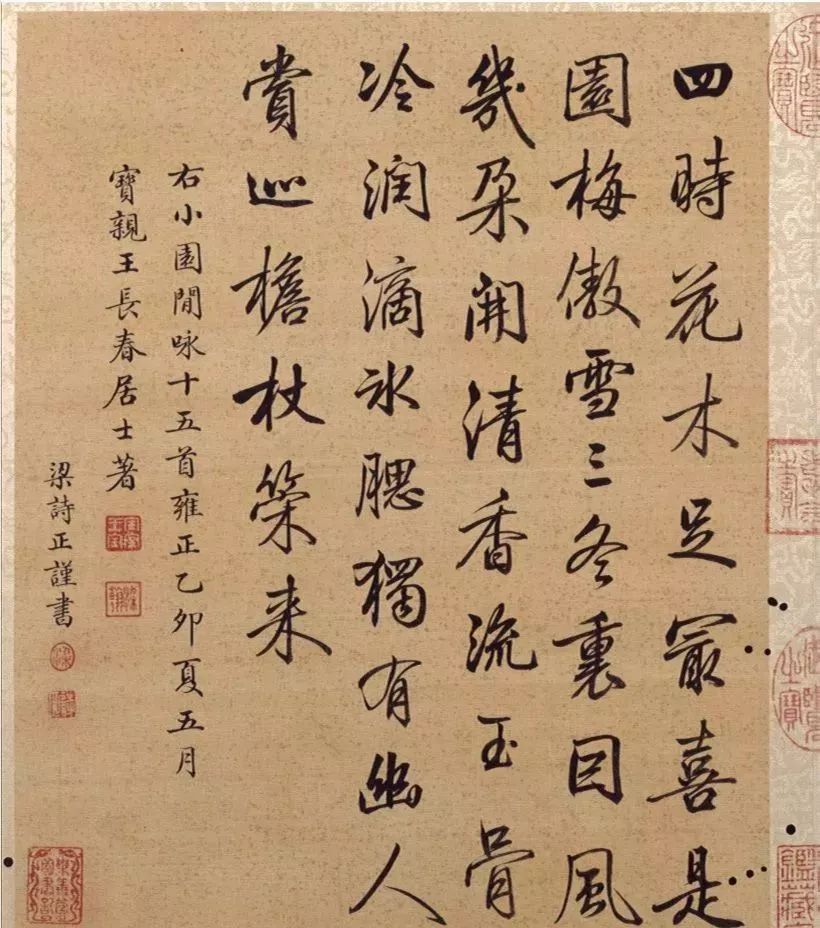 四時花木足冣喜是
園梅傲雪三冬裏因風
幾朶開清香流玉骨
冷潤滴氷腮獨有幽人
賞巡檐杖策来
右小園閒咏十五首雍正乙卯夏五月
寶親王長春居士著
梁詩正謹書